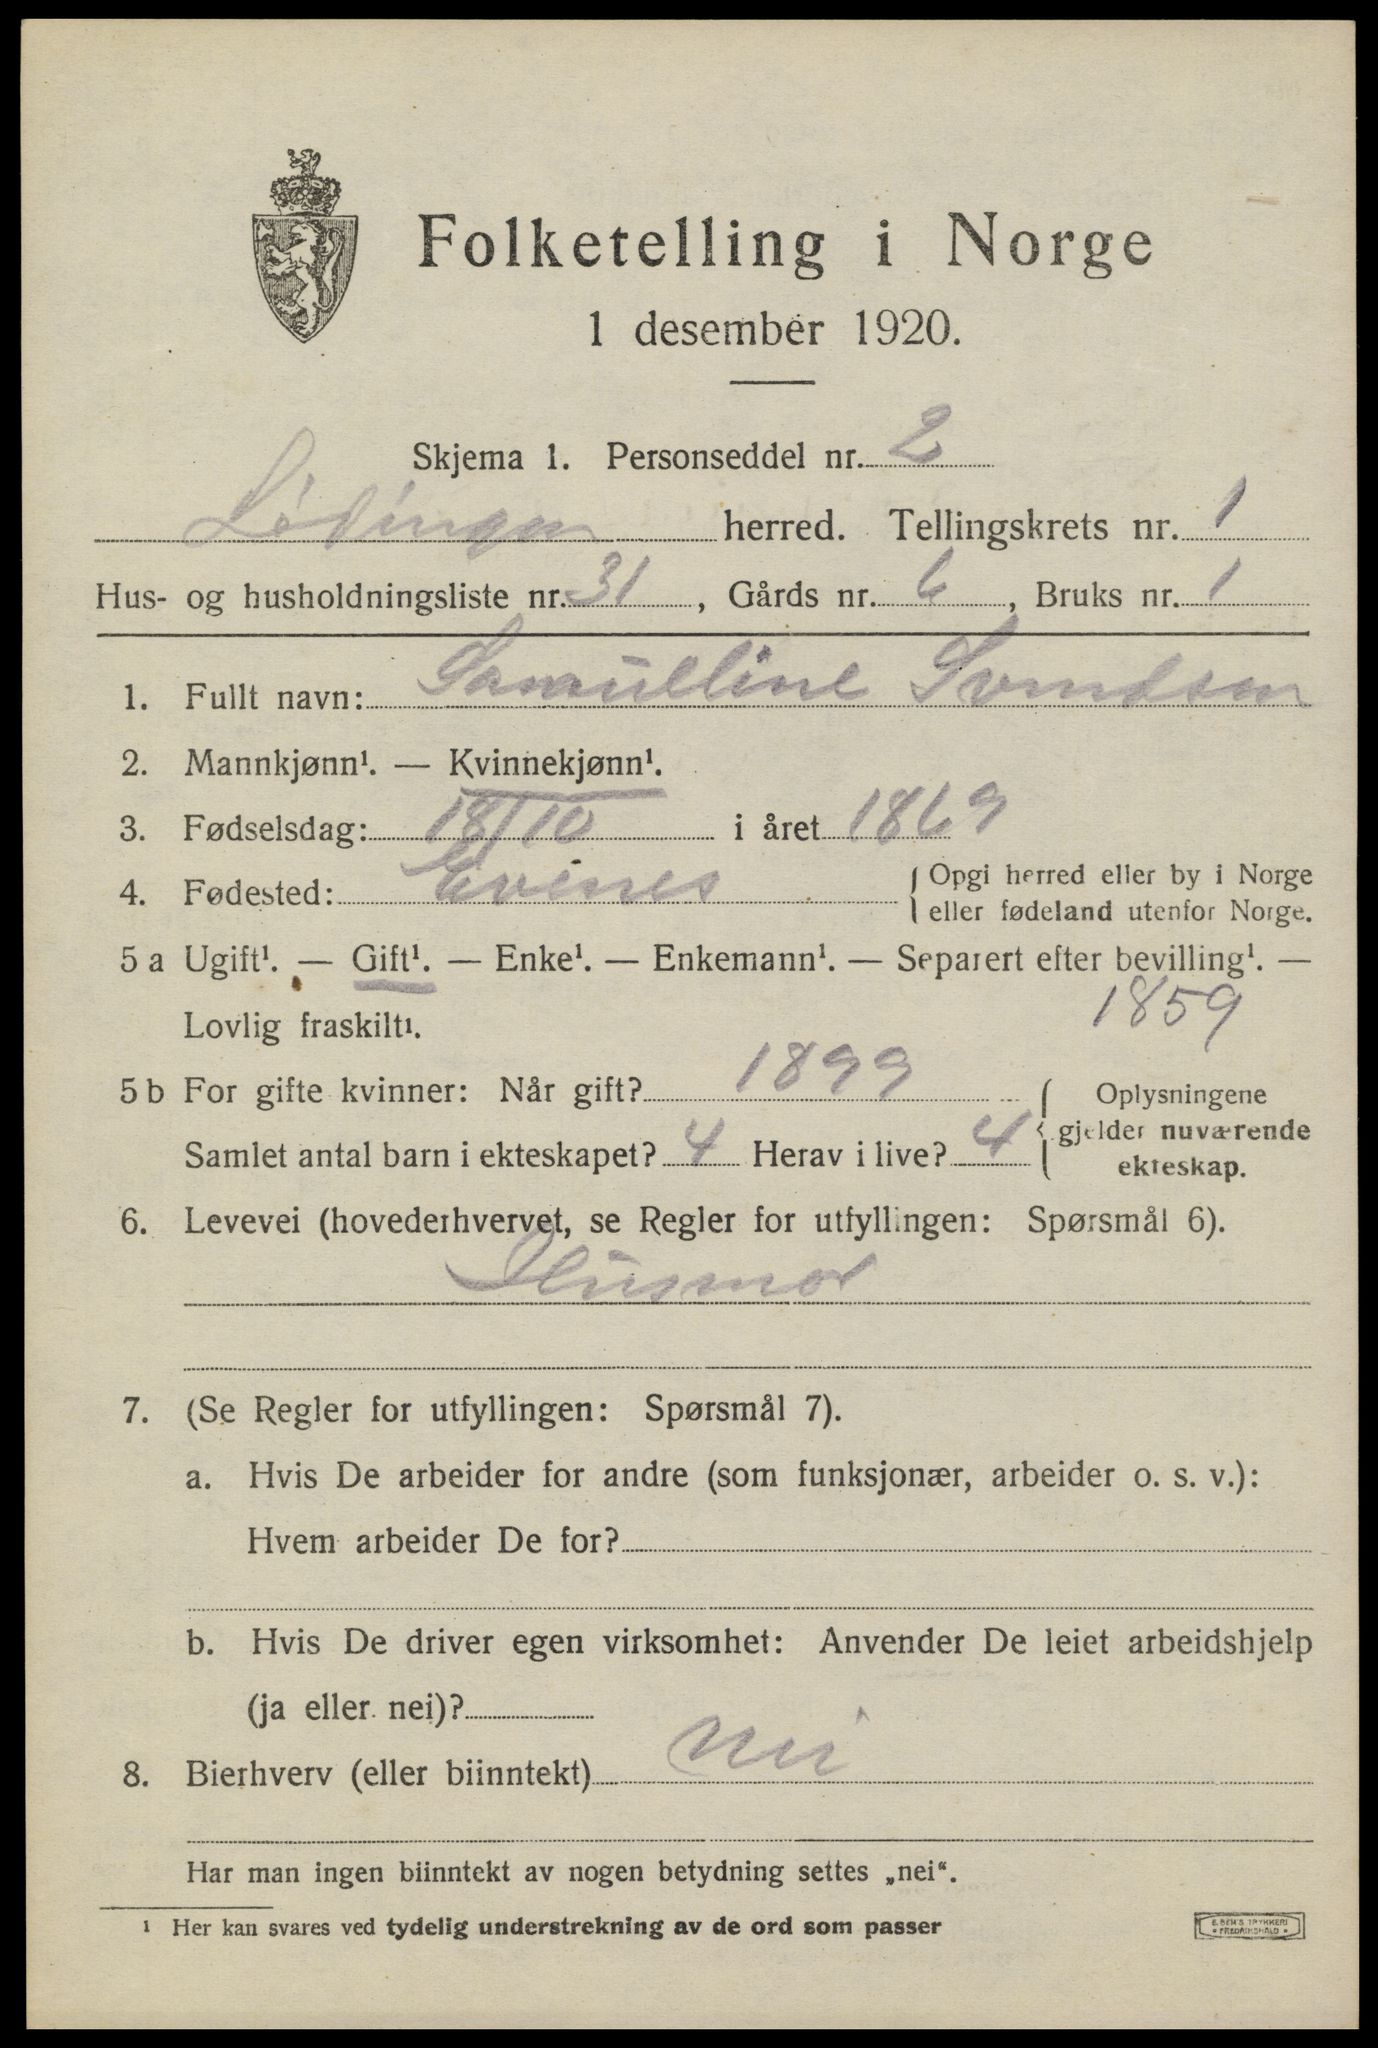 Folketelling i Norge
1 desember 1920.
Skjema 1. Personseddel nr. 2
Lødingen herred. Tellingskrets nr. 1
Hus- og husholdningsliste nr. 31, Gårds nr. 6, Bruks nr. 1
1. Fullt navn: Samulline Svendsen
2. Mannkjønn¹. — Kvinnekjønn¹.
3. Fødselsdag: 18/10 i året 1869
4. Fødested: Evenes { Opgi herred eller by i Norge
eller fødeland utenfor Norge.
5 a Ugift¹. — Gift¹. — Enke¹. — Enkemann¹. — Separert efter bevilling¹. —
Lovlig fraskilt¹. 1859
5 b For gifte kvinner: Når gift? 1899 { Oplysningene
gjelder nuværende
Samlet antal barn i ekteskapet? 4 Herav i live? 4 ekteskap.
6. Levevei (hovederhvervet, se Regler for utfyllingen: Spørsmål 6).
Husmor
7. (Se Regler for utfyllingen: Spørsmål 7).
a. Hvis De arbeider for andre (som funksjonær, arbeider o. s. v.):
Hvem arbeider De for?
b. Hvis De driver egen virksomhet: Anvender De leiet arbeidshjelp
(ja eller nei)?
8. Bierhverv (eller biinntekt) nei
Har man ingen biinntekt av nogen betydning settes „nei“.
¹ Her kan svares ved tydelig understrekning av de ord som passer
E. SEM'S TRYKKERI
FREDRIKSHALD